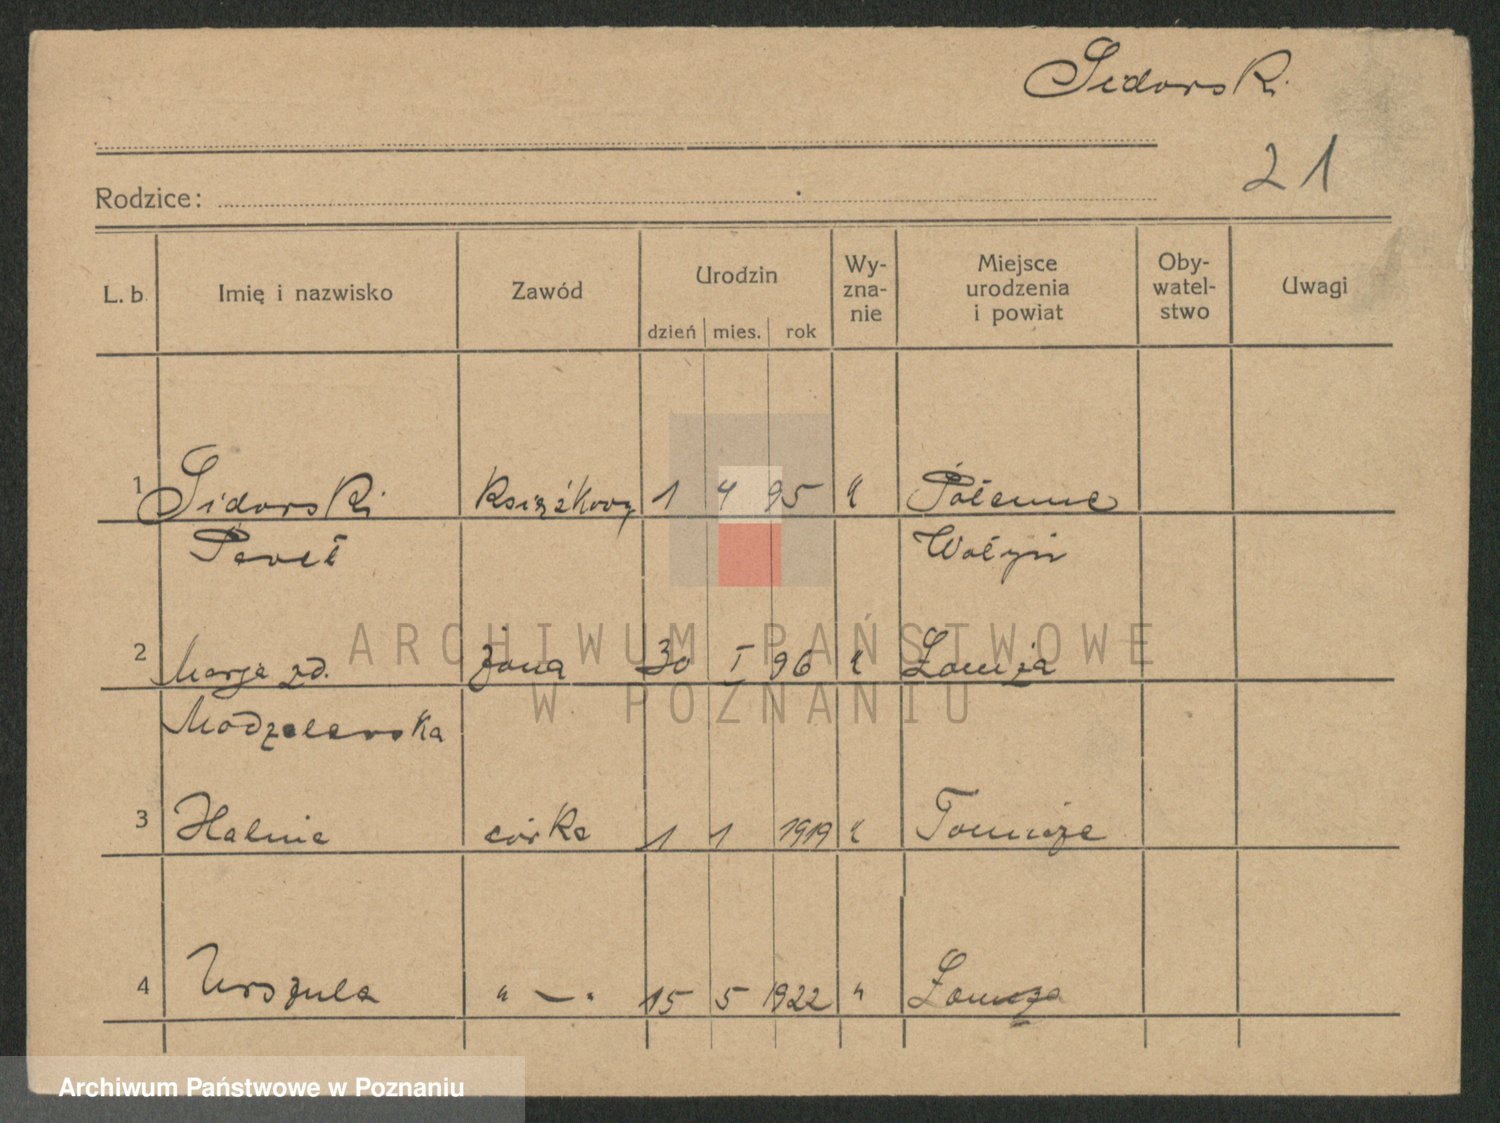 Sidorski
21
Rodzice:
L. b. Imię i nazwisko Zawód Urodzin dzień mies. rok Wyznanie Miejsce urodzenia i powiat Obywatelstwo Uwagi
1 Sidorski książkowy 1 4 95 "
Paweł Wołyń
2 Marja zd. żona 30 I 96 " Łomża
Modzelewska
3 Halina córka 1 1 1919 " Łomża
4 Urszula " — " 15 5 1922 " Łomża
ARCHIWUM PAŃSTWOWE
W POZNANIU
Archiwum Państwowe w Poznaniu